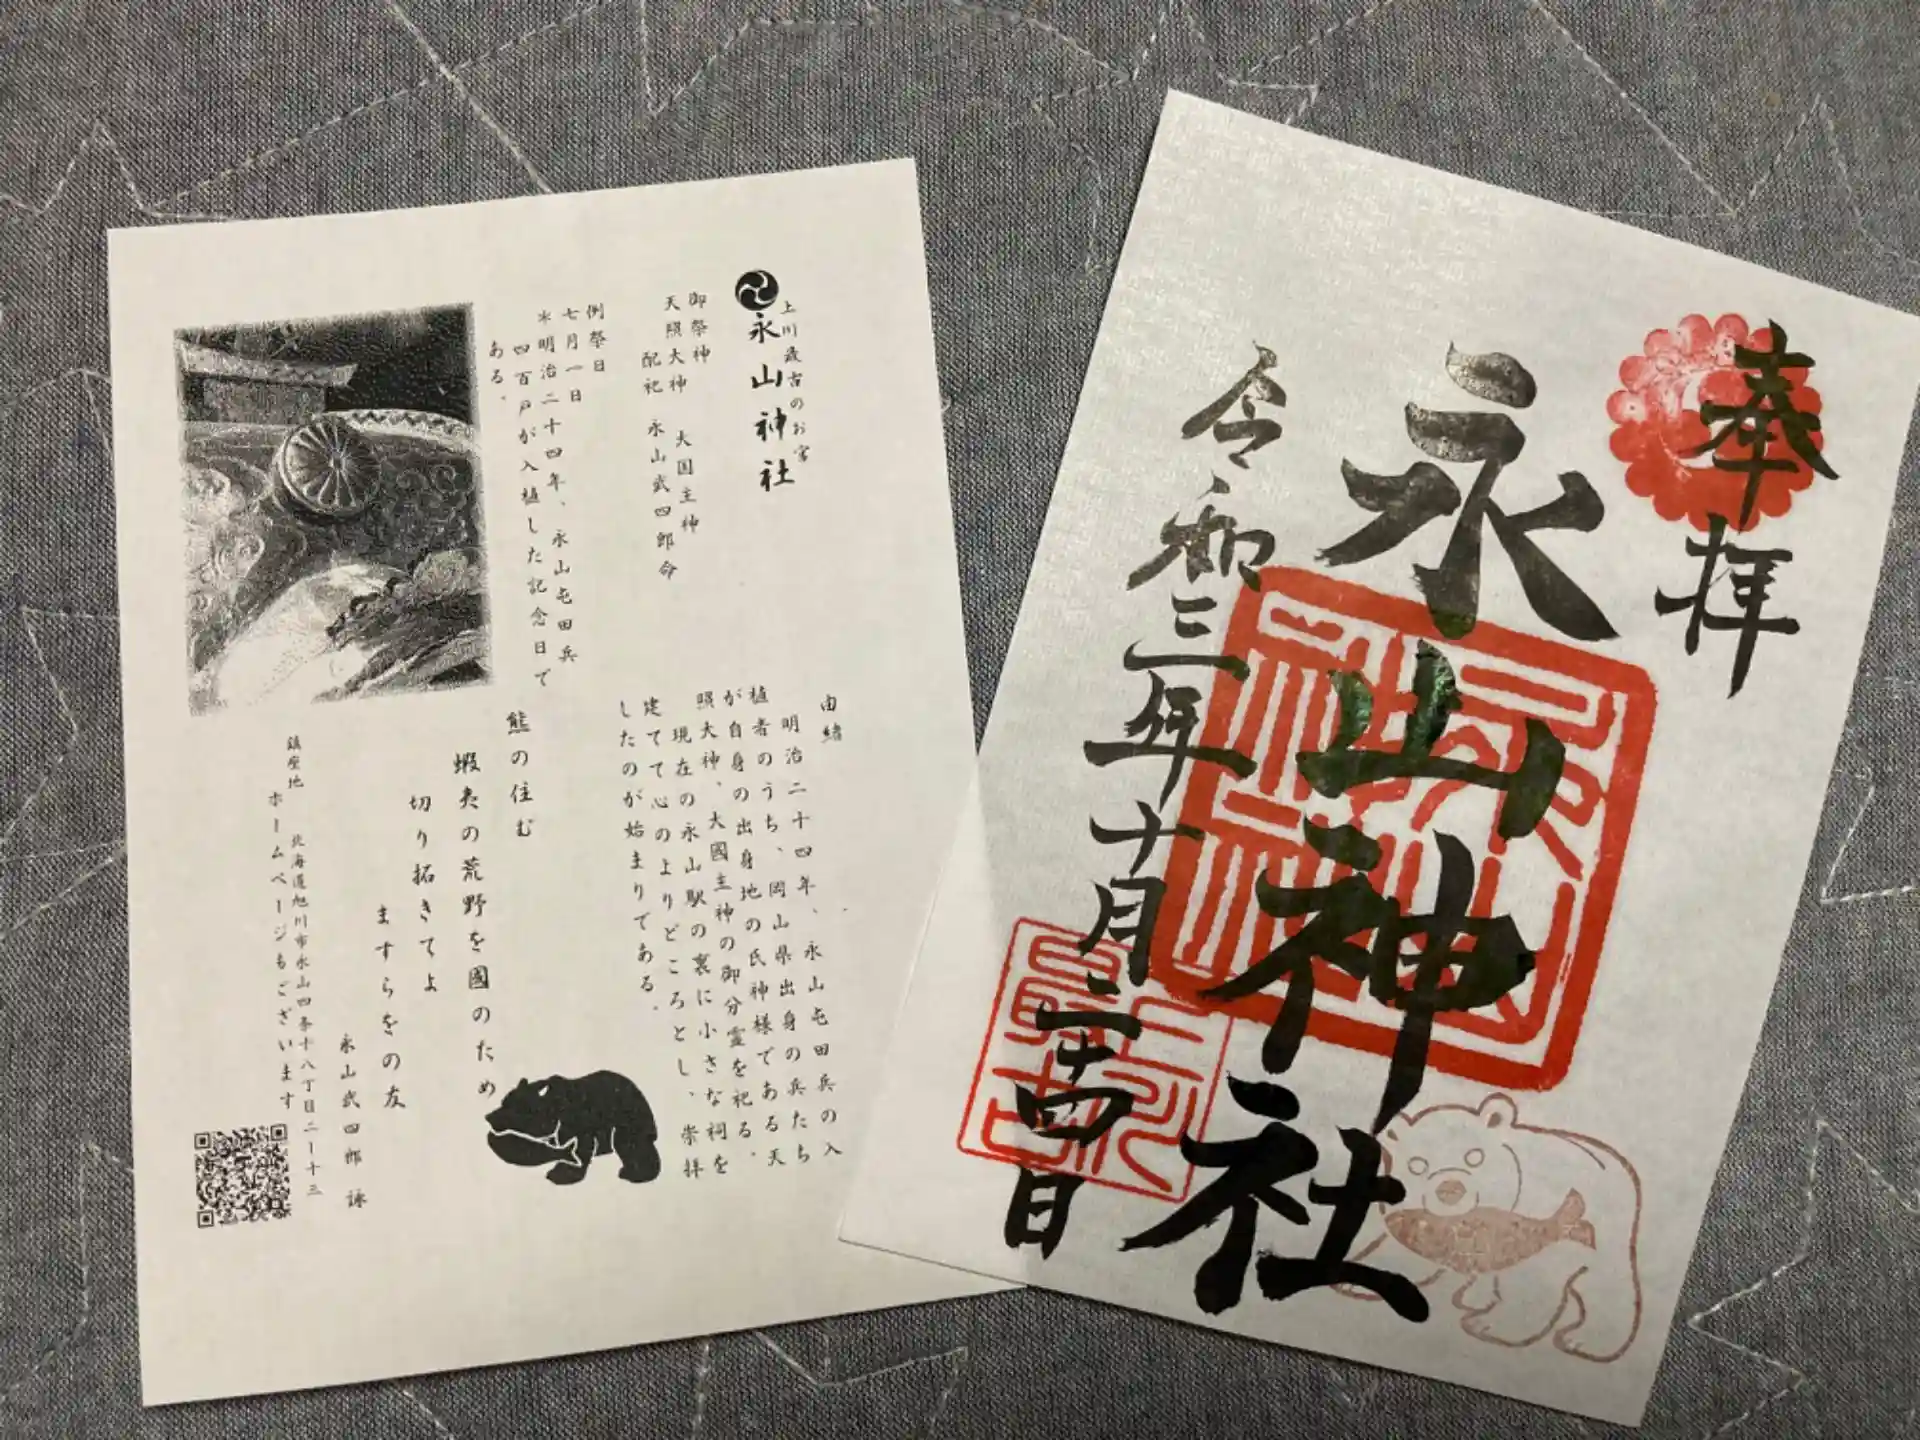 上川最古のお宮
永山神社
御祭神
天照大神　大国主神
配祀　永山武四郎命
例祭日
七月一日
＊明治二十四年、永山屯田兵
四百戸が入植した記念日で
ある。
由緒
明治二十四年、永山屯田兵の入
植者のうち、岡山県出身の兵たち
が自身の出身地の氏神様である天
照大神、大國主神の御分霊を祀る。
現在の永山駅の裏に小さな祠を
建てて心のよりどころとし、崇拝
したのが始まりである。
熊の住む
蝦夷の荒野を國のため
切り拓きてよ
ますらをの友
永山武四郎　詠
鎮座地　北海道旭川市永山四条十八丁目二ー十三
ホームページもございます
奉拝
永山神社
令和三年十月二十四日